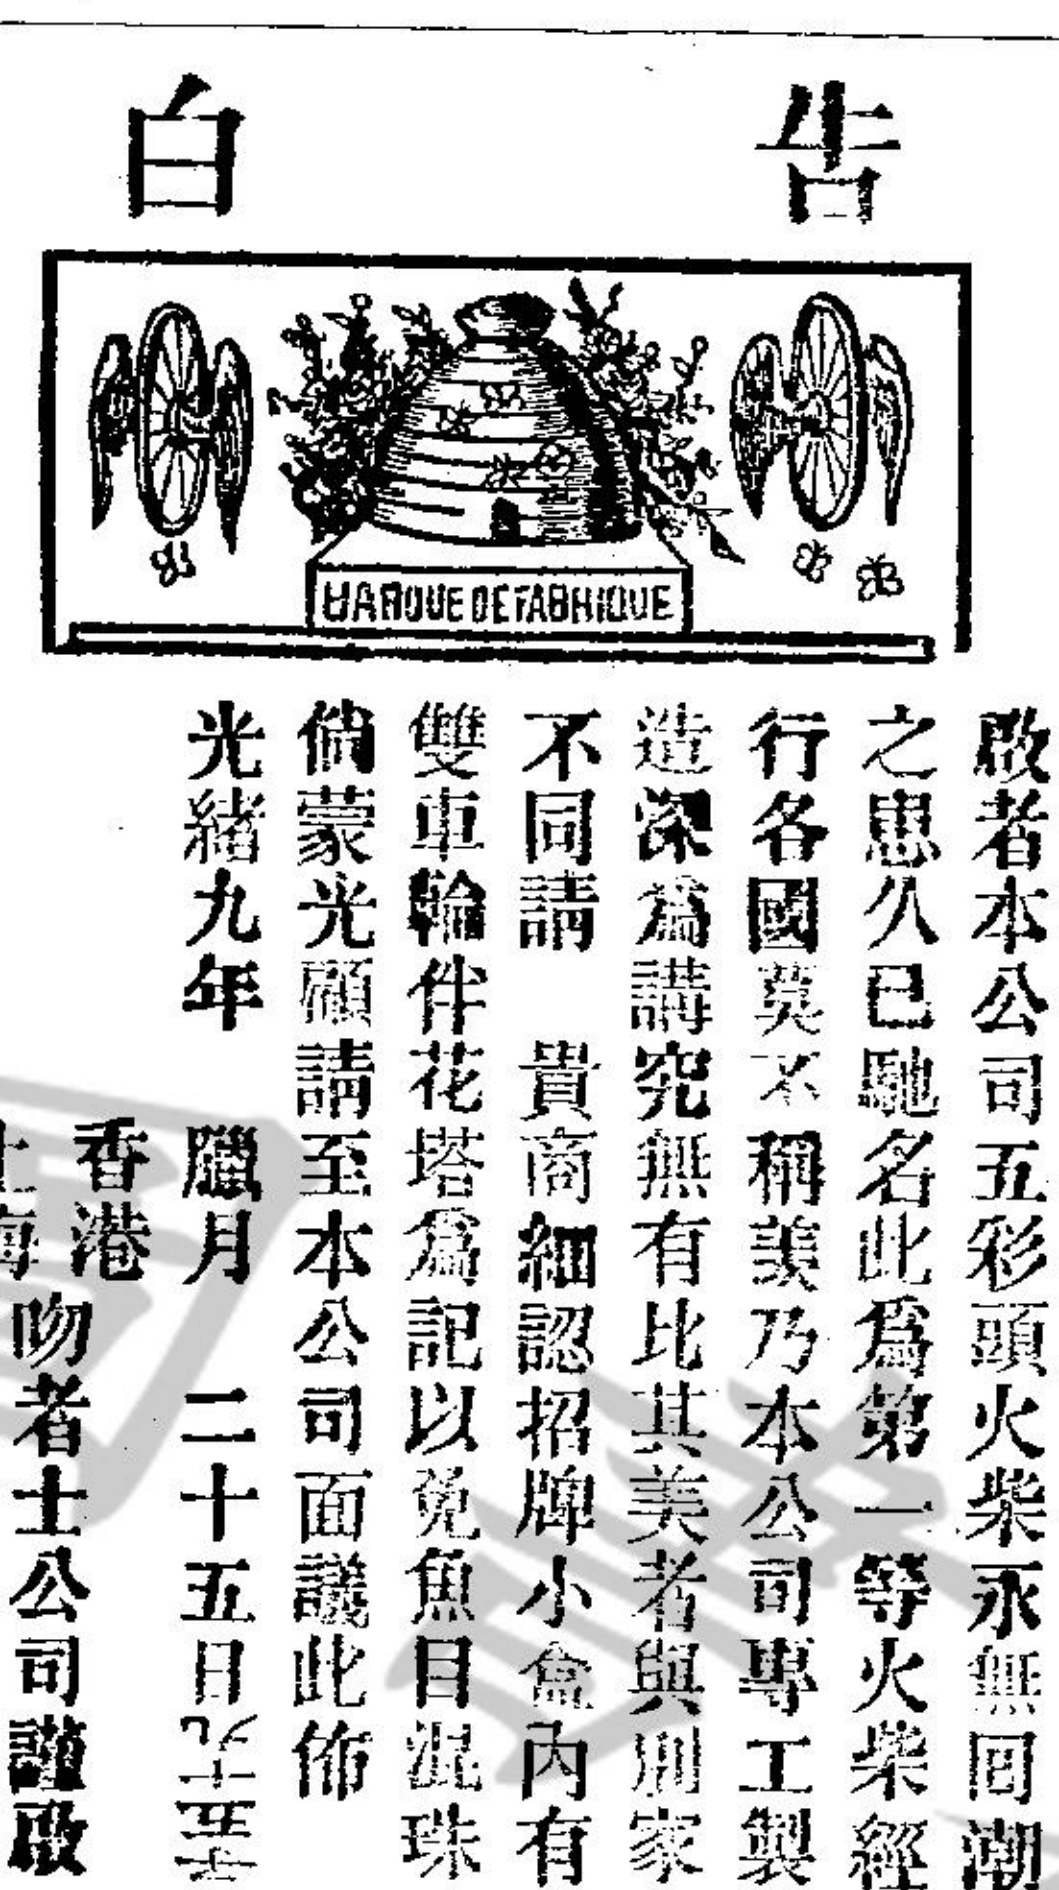 告白
MARQUE DE FABRIQUE
啟者本公司五彩頭火柴永無回潮
之患久已馳名此爲第一等火柴經
行各國莫不稱美乃本公司專工製
造深爲講究無有比其美者與別家
不同請 貴商細認招牌小盒內有
雙車輪伴花塔爲記以免魚目混珠
倘蒙光顧請至本公司面議此佈
光緒九年 臘月 二十五日
香港
上海
吻者士公司謹啟